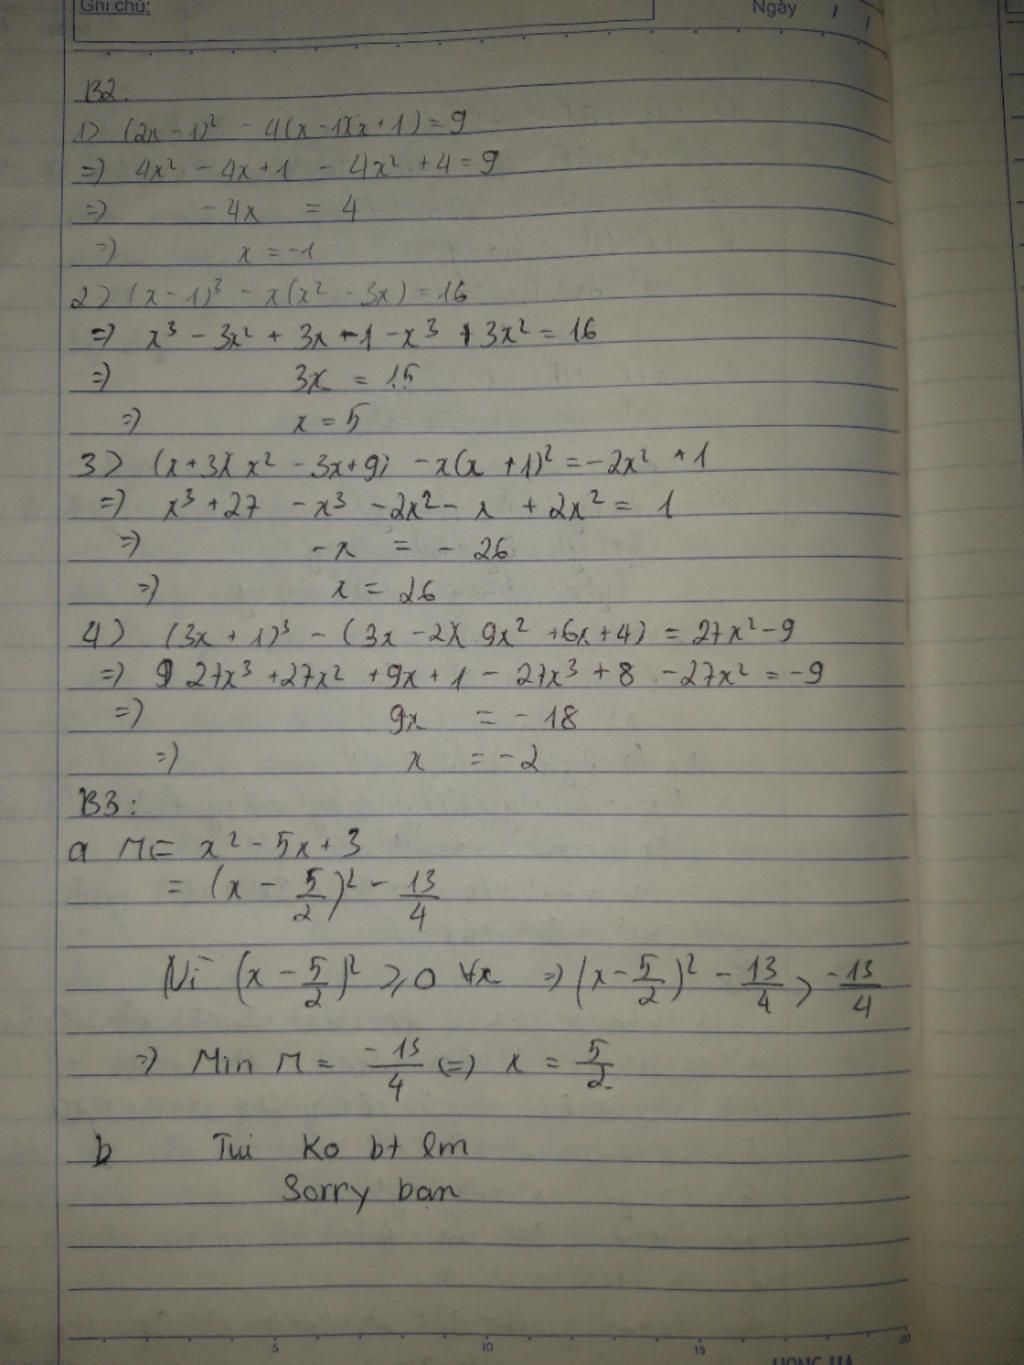 Ghi chú:
Ngày / /
B2:
1> (2x - 1)² - 4(x - 1)(x + 1) = 9
=> 4x² - 4x + 1 - 4x² + 4 = 9
=> -4x = 4
=> x = -1
2> (x - 1)³ - x(x² - 3x) = 16
=> x³ - 3x² + 3x - 1 - x³ + 3x² = 16
=> 3x = 15
=> x = 5
3> (x + 3)(x² - 3x + 9) - x(x + 1)² = -2x² + 1
=> x³ + 27 - x³ - 2x² - x + 2x² = 1
=> -x = - 26
=> x = 26
4> (3x + 1)³ - (3x - 2)(9x² + 6x + 4) = 27x² - 9
=> 27x³ + 27x² + 9x + 1 - 27x³ + 8 - 27x² = -9
=> 9x = - 18
=> x = -2
B3:
a M = x² - 5x + 3
= (x - 5/2)² - 13/4
Vì (x - 5/2)² ≥ 0 ∀x => (x - 5/2)² - 13/4 ≥ -13/4
=> Min M = -13/4 (=) x = 5/2
b Tui ko bt lm
Sorry bạn
5 10 15 20